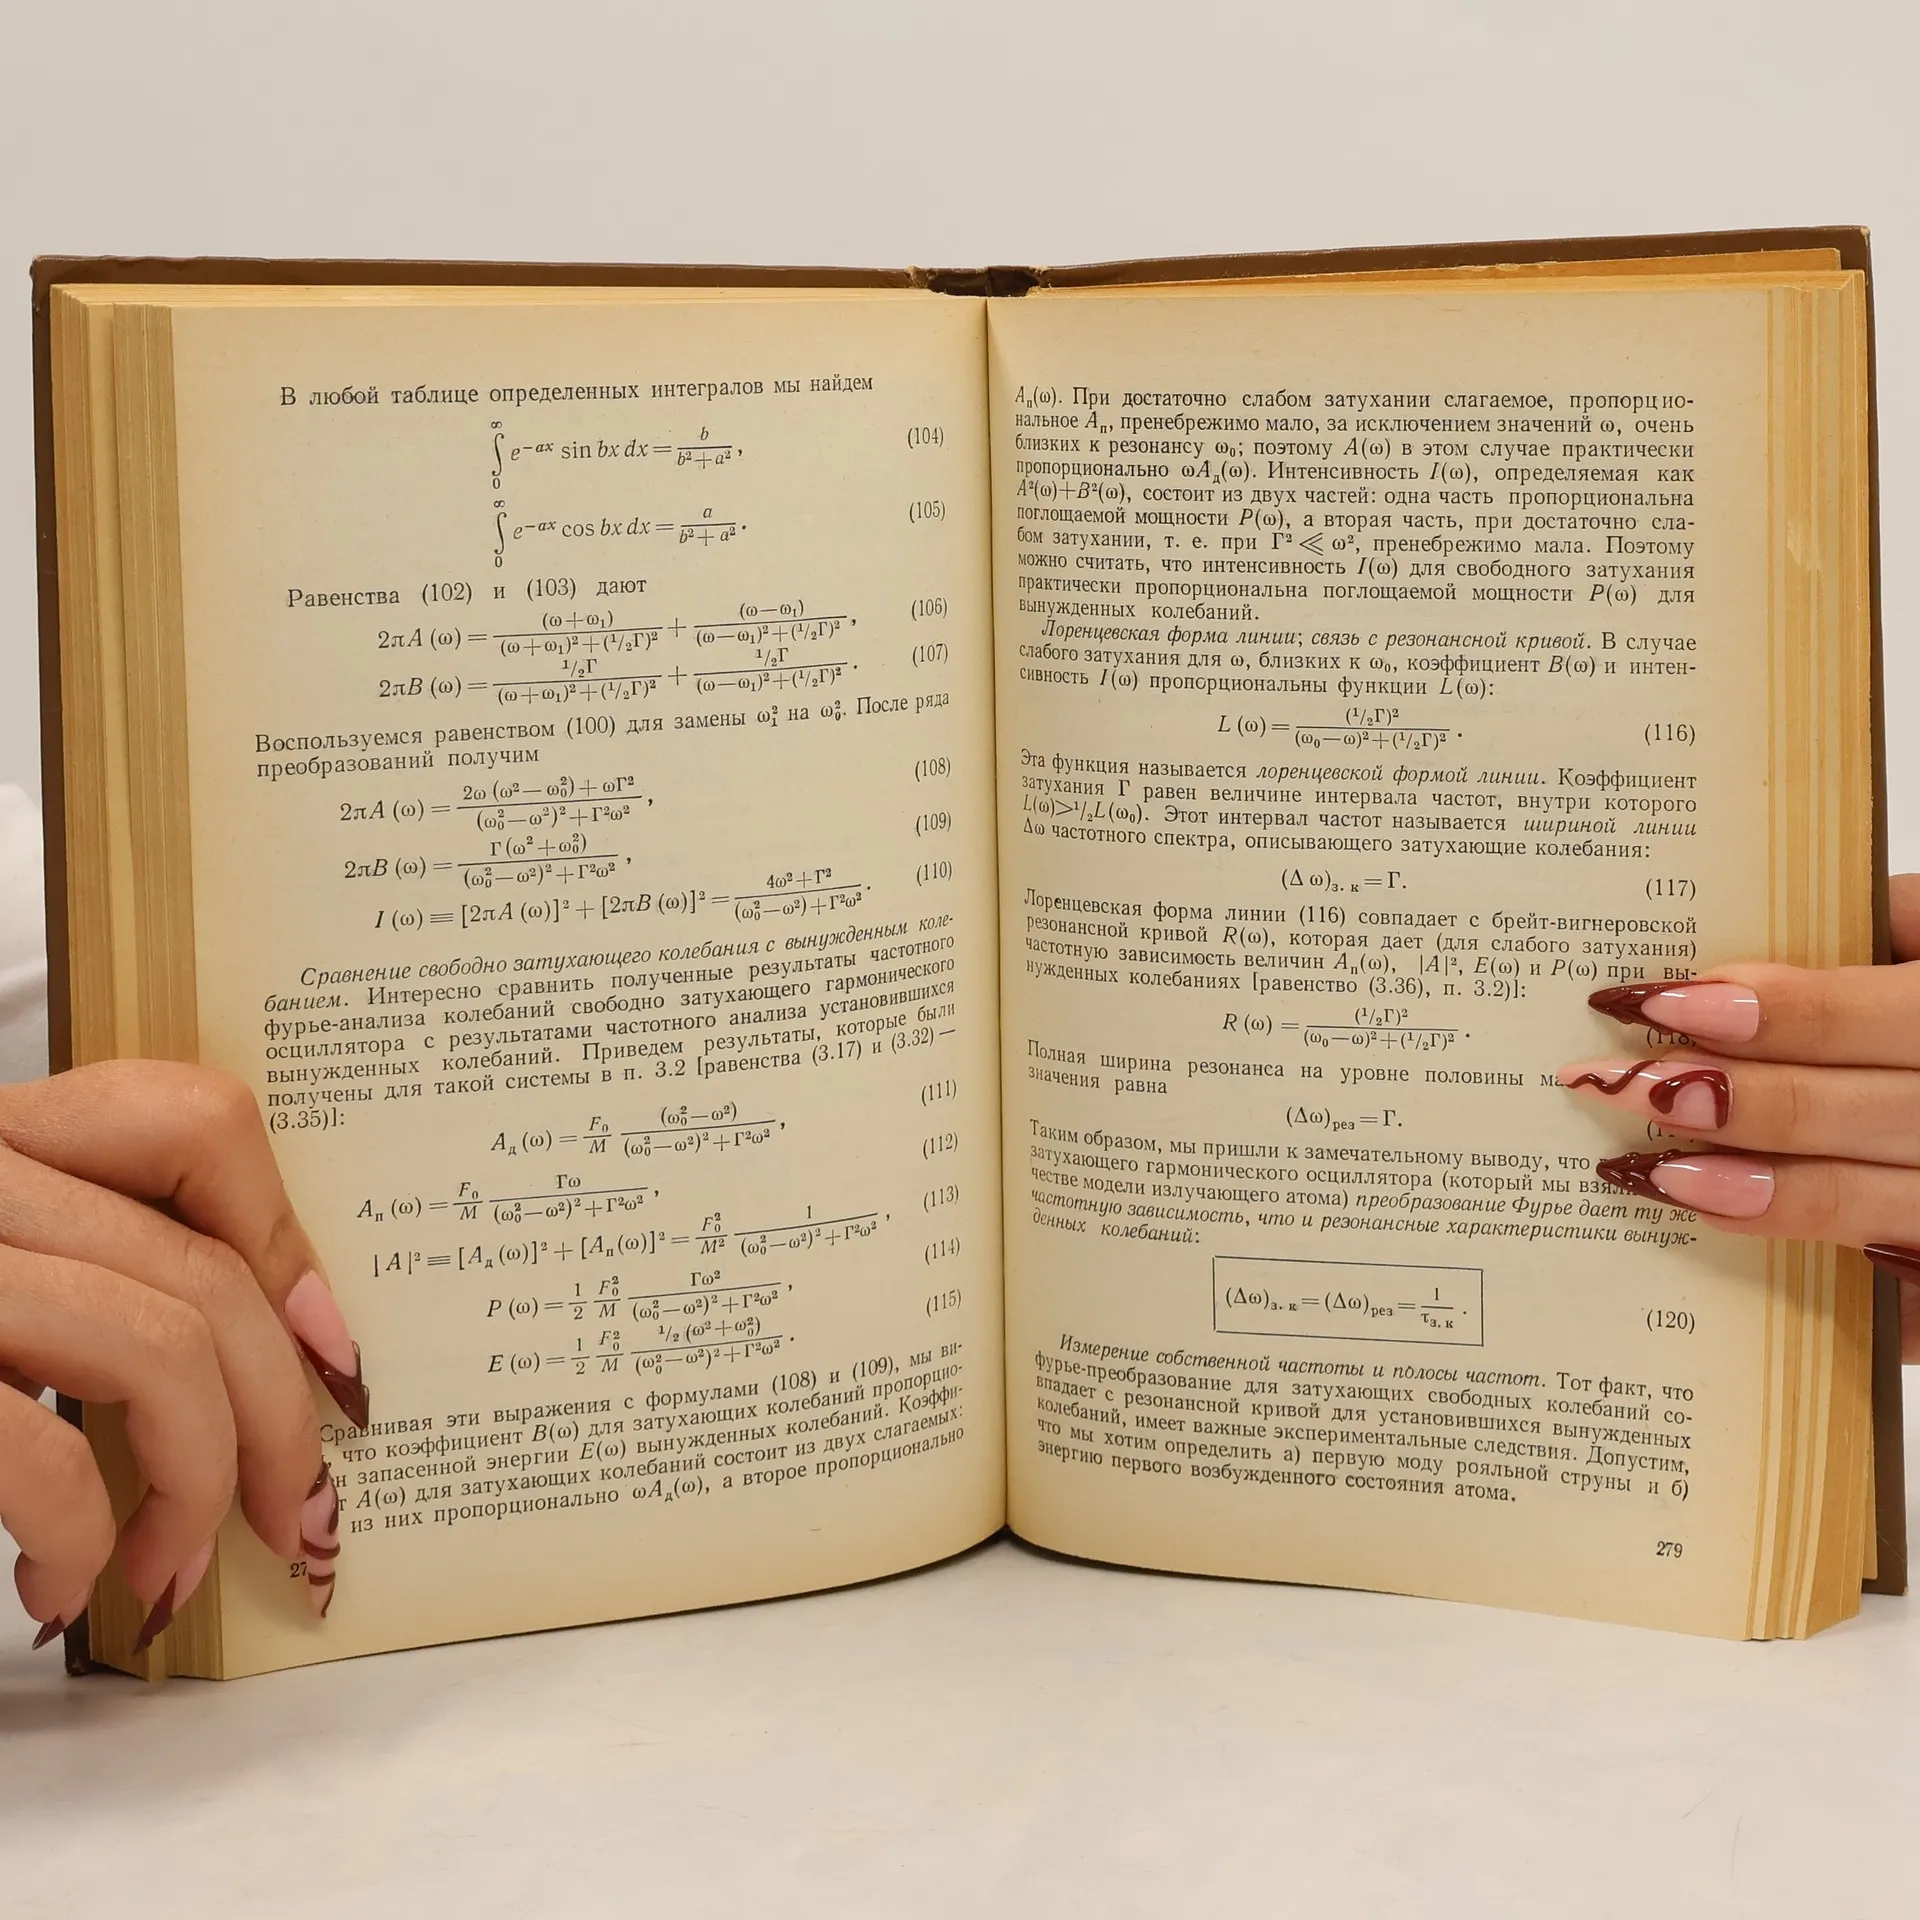 В любой таблице определенных интегралов мы найдем
∞∫0 e−ax sin bx dx = b/(b²+a²), (104)
∞∫0 e−ax cos bx dx = a/(b²+a²). (105)
Равенства (102) и (103) дают
2πA (ω) = (ω+ω₁)/((ω+ω₁)²+(¹/₂Γ)²) + (ω−ω₁)/((ω−ω₁)²+(¹/₂Γ)²), (106)
2πB (ω) = ¹/₂Γ/((ω+ω₁)²+(¹/₂Γ)²) + ¹/₂Γ/((ω−ω₁)²+(¹/₂Γ)²). (107)
Воспользуемся равенством (100) для замены ω₁² на ω₀². После ряда
преобразований получим
2πA (ω) = (2ω (ω²−ω₀²)+ωΓ²)/((ω₀²−ω²)²+Γ²ω²), (108)
2πB (ω) = Γ (ω²+ω₀²)/((ω₀²−ω²)²+Γ²ω²), (109)
I (ω) ≡ [2πA (ω)]² + [2πB (ω)]² = (4ω²+Γ²)/((ω₀²−ω²)+Γ²ω²). (110)
Сравнение свободно затухающего колебания с вынужденным коле-
банием. Интересно сравнить полученные результаты частотного
фурье-анализа колебаний свободно затухающего гармонического
осциллятора с результатами частотного анализа установившихся
вынужденных колебаний. Приведем результаты, которые были
получены для такой системы в п. 3.2 [равенства (3.17) и (3.32) —
(3.35)]:
Aд (ω) = F₀/M (ω₀²−ω²)/((ω₀²−ω²)²+Γ²ω²), (111)
Aп (ω) = F₀/M Γω/((ω₀²−ω²)²+Γ²ω²), (112)
|A|² ≡ [Aд (ω)]² + [Aп (ω)]² = F₀²/M² 1/((ω₀²−ω²)²+Γ²ω²), (113)
P (ω) = 1/2 F₀²/M Γω²/((ω₀²−ω²)²+Γ²ω²), (114)
E (ω) = 1/2 F₀²/M ¹/₂ (ω²+ω₀²)/((ω₀²−ω²)²+Γ²ω²). (115)
Сравнивая эти выражения с формулами (108) и (109), мы ви-
что коэффициент B(ω) для затухающих колебаний пропорцио-
запасенной энергии E(ω) вынужденных колебаний. Коэффи-
A(ω) для затухающих колебаний состоит из двух слагаемых:
из них пропорционально ωAд(ω), а второе пропорционально
Aп(ω). При достаточно слабом затухании слагаемое, пропорцио-
нальное Aп, пренебрежимо мало, за исключением значений ω, очень
близких к резонансу ω₀; поэтому A(ω) в этом случае практически
пропорционально ωAд(ω). Интенсивность I(ω), определяемая как
A²(ω)+B²(ω), состоит из двух частей: одна часть пропорциональна
поглощаемой мощности P(ω), а вторая часть, при достаточно сла-
бом затухании, т. е. при Γ² ≪ ω², пренебрежимо мала. Поэтому
можно считать, что интенсивность I(ω) для свободного затухания
практически пропорциональна поглощаемой мощности P(ω) для
вынужденных колебаний.
Лоренцевская форма линии; связь с резонансной кривой. В случае
слабого затухания для ω, близких к ω₀, коэффициент B(ω) и интен-
сивность I(ω) пропорциональны функции L(ω):
L (ω) = (¹/₂Γ)²/((ω₀−ω)²+(¹/₂Γ)²). (116)
Эта функция называется лоренцевской формой линии. Коэффициент
затухания Γ равен величине интервала частот, внутри которого
L(ω)>¹/₂L(ω₀). Этот интервал частот называется шириной линии
Δω частотного спектра, описывающего затухающие колебания:
(Δ ω)з. к = Γ. (117)
Лоренцевская форма линии (116) совпадает с брейт-вигнеровской
резонансной кривой R(ω), которая дает (для слабого затухания)
частотную зависимость величин Aп(ω), |A|², E(ω) и P(ω) при вы-
нужденных колебаниях [равенство (3.36), п. 3.2)]:
R (ω) = (¹/₂Γ)²/((ω₀−ω)²+(¹/₂Γ)²). (118)
Полная ширина резонанса на уровне половины
значения равна
(Δω)рез = Γ.
Таким образом, мы пришли к замечательному выводу, что
затухающего гармонического осциллятора (который мы взяли
честве модели излучающего атома) преобразование Фурье дает ту же
частотную зависимость, что и резонансные характеристики вынуж-
денных колебаний:
(Δω)з. к = (Δω)рез = 1/τз. к. (120)
Измерение собственной частоты и полосы частот. Тот факт, что
фурье-преобразование для затухающих свободных колебаний со-
впадает с резонансной кривой для установившихся вынужденных
колебаний, имеет важные экспериментальные следствия. Допустим,
что мы хотим определить а) первую моду рояльной струны и б)
энергию первого возбужденного состояния атома.
279